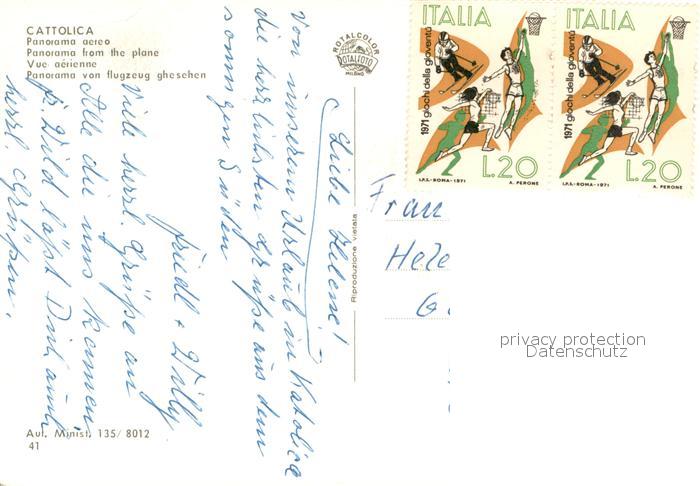 CATTOLICA
Panorama aereo
Panorama from the plane
Vue aérienne
Panorama von flugzeug ghesehen
ROTALCOLOR
ROTALFOTO
MILANO
Liebe Helene!
Von unserem Urlaub in Katolica
die herzlichsten Grüße aus dem
sonnigen Süden
Friedl + Willy
Viele herzl. Grüße an
Alle die uns kennen
Willy läßt Dich auch
herzl. Grüßen.
Riproduzione vietata
Aut. Minist. 135/8012
41
ITALIA
1971 giochi della gioventù
L.20
I.P.S.-ROMA-1971 A. PERONE
ITALIA
1971 giochi della gioventù
L.20
I.P.S.-ROMA-1971 A. PERONE
Frau
Hele
G
privacy protection
Datenschutz